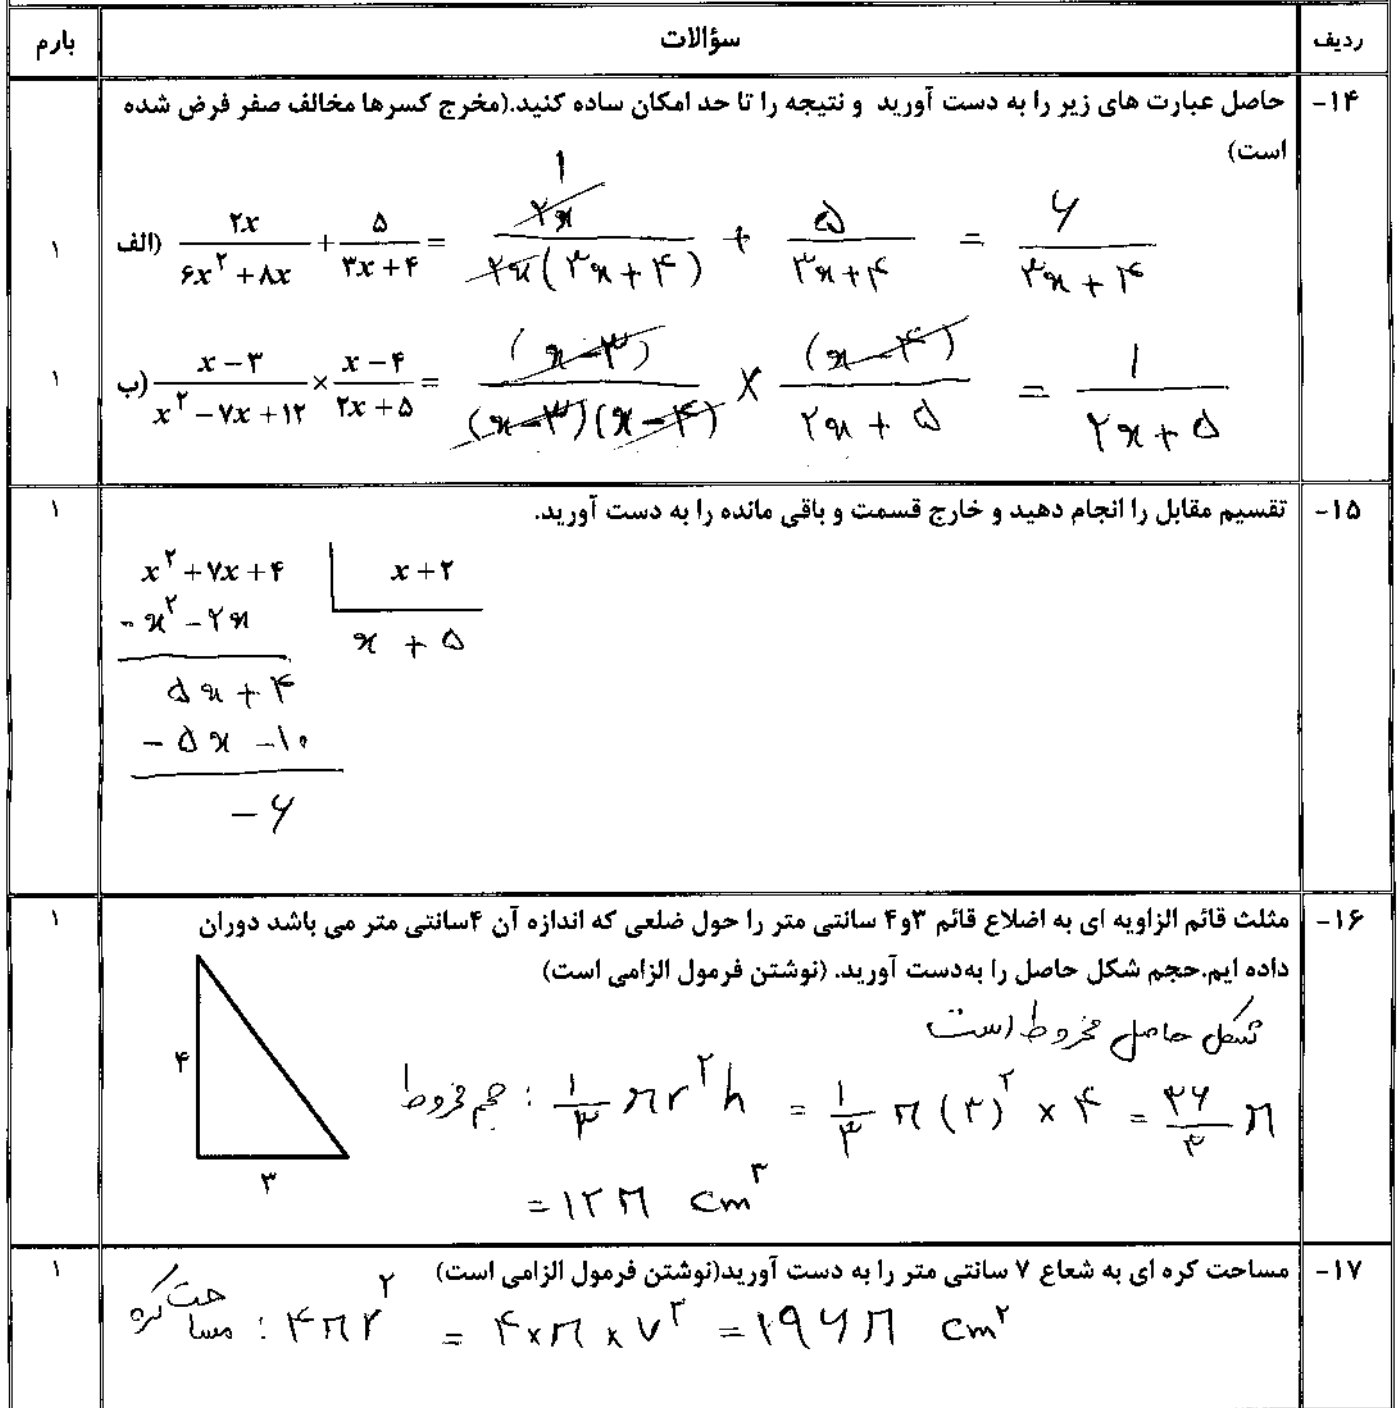 ردیف سؤالات بارم
۱۴- حاصل عبارت های زیر را به دست آورید و نتیجه را تا حد امکان ساده کنید.(مخرج کسرها مخالف صفر فرض شده
است)
الف) ۲x/(۶x^۲ + ۸x) + ۵/(۳x + ۴) = ۲x/(۲x(۳x + ۴)) + ۵/(۳x + ۴) = ۶/(۳x + ۴) ۱
۱
ب) (x − ۳)/(x^۲ − ۷x + ۱۲) × (x − ۴)/(۲x + ۵) = (x − ۳)/((x − ۳)(x − ۴)) × (x − ۴)/(۲x + ۵) = ۱/(۲x + ۵) ۱
۱۵- تقسیم مقابل را انجام دهید و خارج قسمت و باقی مانده را به دست آورید. ۱
x^۲ + ۷x + ۴ | x + ۲
− x^۲ − ۲x x + ۵
۵x + ۴
− ۵x − ۱۰
− ۶
۱۶- مثلث قائم الزاویه ای به اضلاع قائم ۳و۴ سانتی متر را حول ضلعی که اندازه آن ۴سانتی متر می باشد دوران ۱
داده ایم.حجم شکل حاصل را به‌دست آورید. (نوشتن فرمول الزامی است)
شکل حاصل مخروط است
۴
حجم مخروط : ۱/۳ πr^۲h = ۱/۳ π(۳)^۲ × ۴ = ۳۶/۳ π
۳
= ۱۲π cm^۳
۱۷- مساحت کره ای به شعاع ۷ سانتی متر را به دست آورید(نوشتن فرمول الزامی است) ۱
مساحت کره : ۴πr^۲ = ۴×π×۷^۲ = ۱۹۶π cm^۲